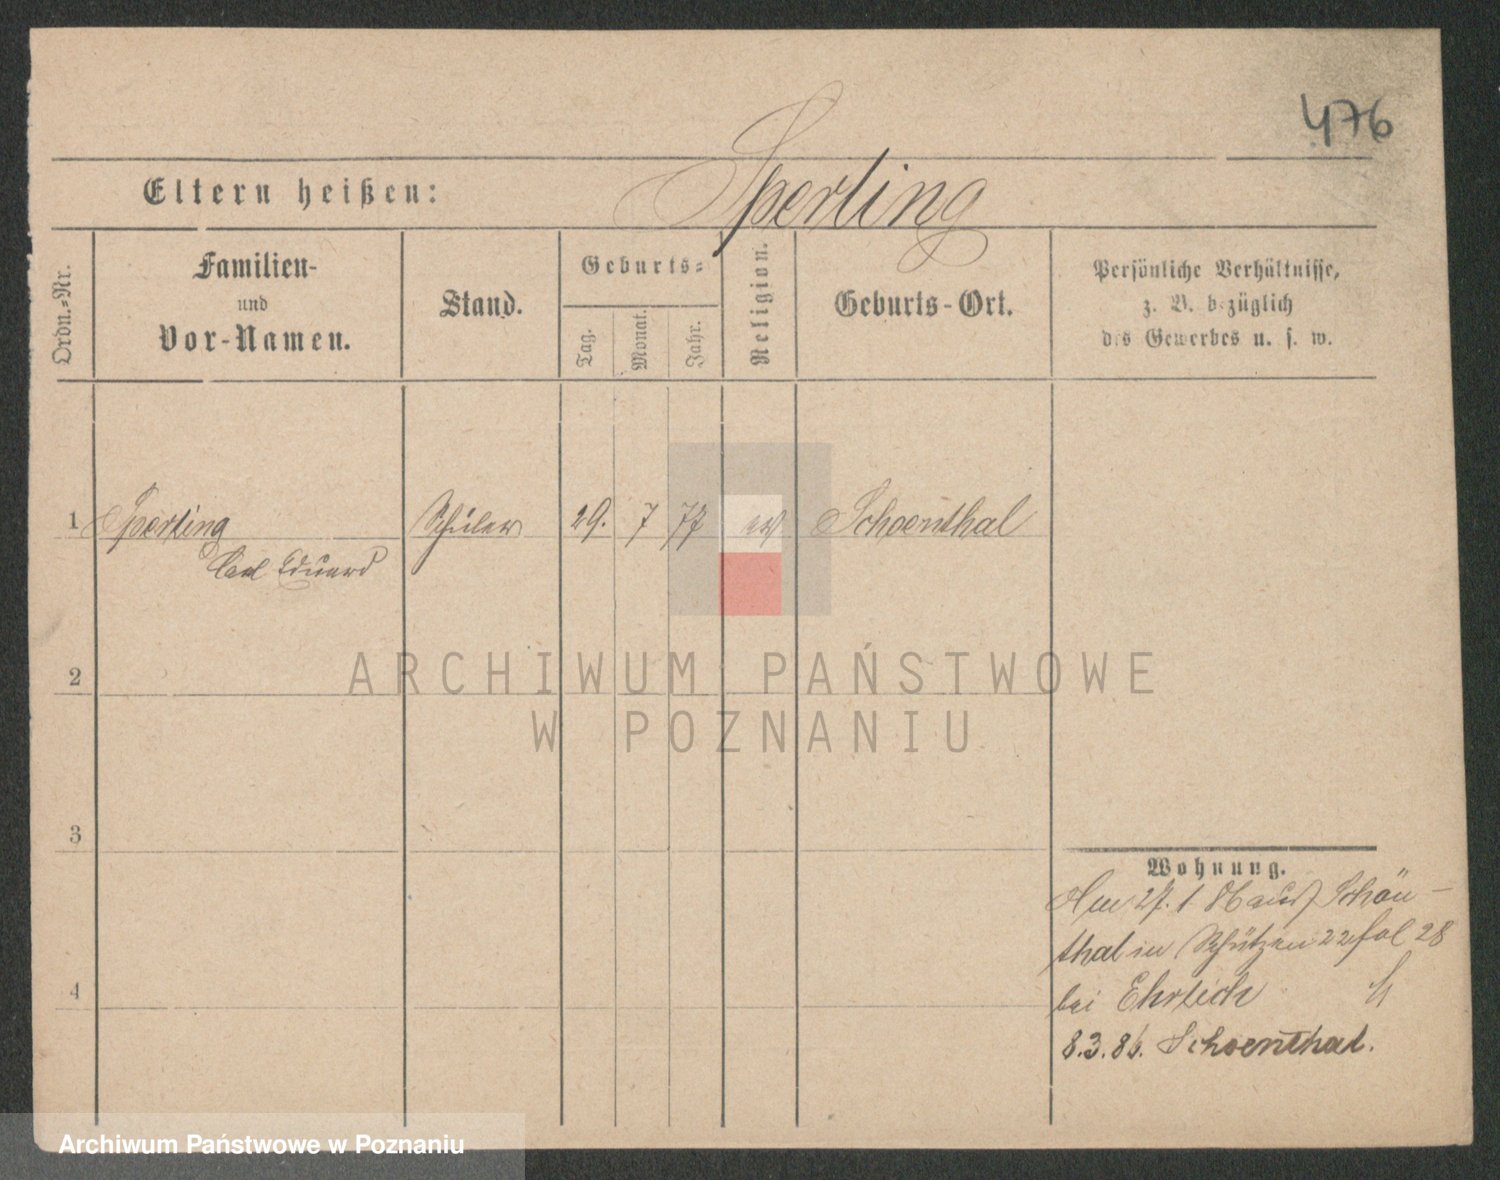 476
Eltern heißen: Sperling
Ordn.-Nr.
Familien-
und
Vor-Namen.
Stand.
Geburts-
Tag.
Monat.
Jahr.
Religion.
Geburts-Ort.
Persönliche Verhältnisse,
z. B. bezüglich
des Gewerbes u. s. w.
1 Sperling Schüler 29. 7 77 ev Schoenthal
Carl Eduard
2
3
4
Wohnung.
27. 1 Schön-
thal in Schützen 22 fol 28
bei Ehrlich
8.3.86. Schoenthal.
ARCHIWUM PAŃSTWOWE
W POZNANIU
Archiwum Państwowe w Poznaniu